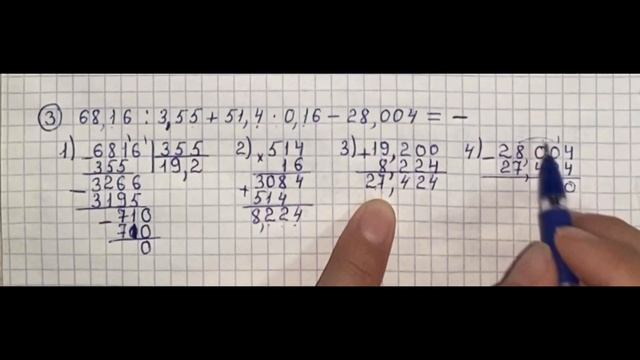 ③ 68,16 : 3,55 + 51,4 · 0,16 − 28,004 = −
1) − 6816 | 355
355 19,2
− 3266
3195
− 710
710
0
2) × 514
16
+ 3084
514
8,224
3) + 19,200
8,224
27,424
4) − 28,004
27,4 4
0